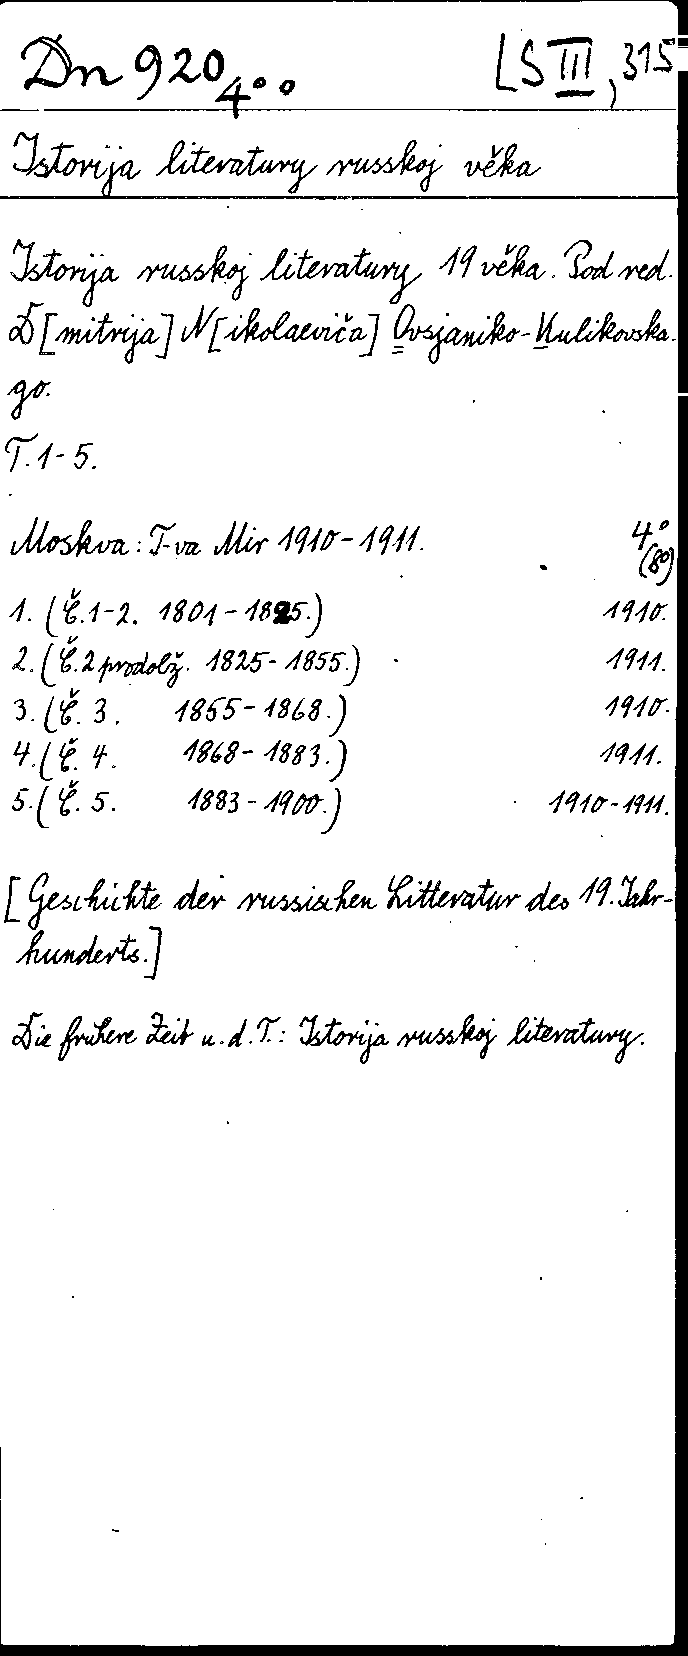 Dn 920 4°° LS III, 315
Istorija literatury russkoj věka
Istorija russkoj literatury 19 věka. Pod red.
D[mitrija] N[ikolaeviča] Ovsjaniko-Kulikovska-
go.
T. 1-5.
Moskva: T-va Mir 1910-1911. 4°
(8°)
1. (Č. 1-2. 1801-1825.) 1910.
2. (Č. 2 prodolž. 1825-1855.) 1911.
3. (Č. 3. 1855-1868.) 1910.
4. (Č. 4. 1868-1883.) 1911.
5. (Č. 5. 1883-1900.) 1910-1911.
[Geschichte der russischen Litteratur des 19. Jahr-
hunderts.]
Die frühere Zeit u. d. T.: Istorija russkoj literatury.